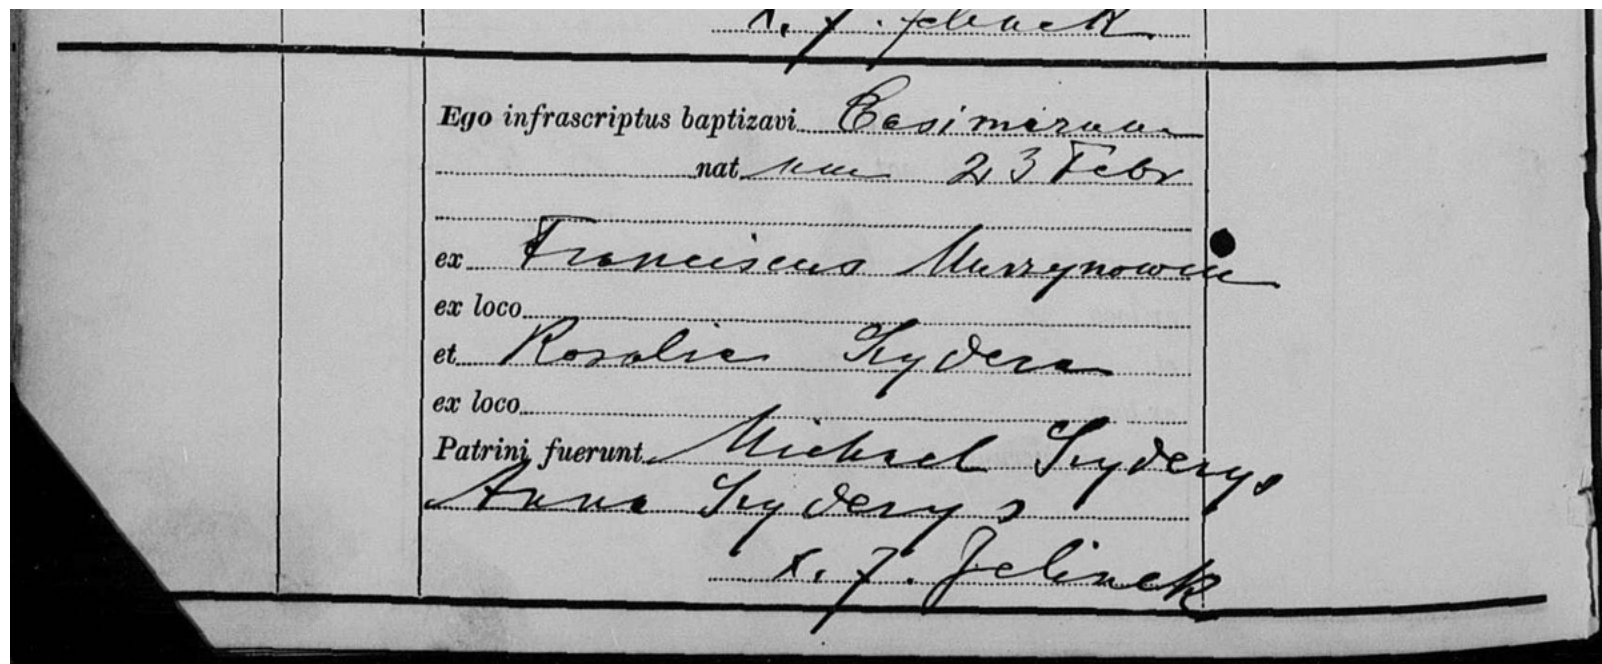 X. J. Jelinek
Ego infrascriptus baptizavi Casimirum
nat um 23 Febr
ex Franciscus Murzynowski
ex loco
et Rosalie Szydera
ex loco
Patrini fuerunt Michael Szyderys
Anna Szyderys
X. J. Jelinek